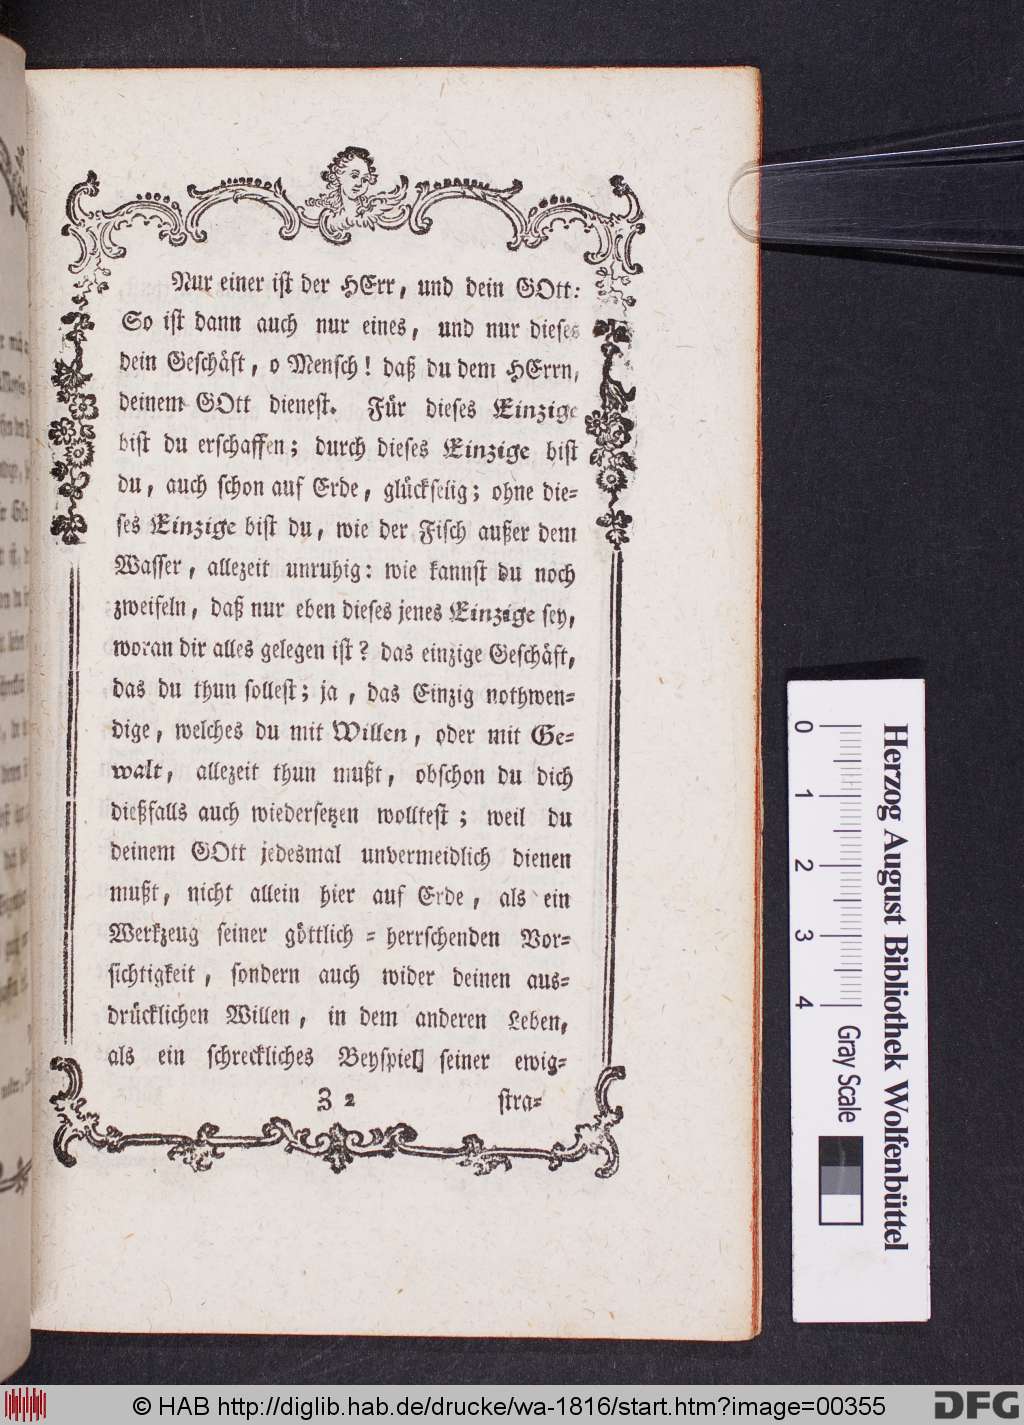 Nur einer ist der HErr, und dein GOtt:
So ist dann auch nur eines, und nur dieses
dein Geschäft, o Mensch! daß du dem HErrn,
deinem GOtt dienest. Für dieses Einzige
bist du erschaffen; durch dieses Einzige bist
du, auch schon auf Erde, glückselig; ohne die=
ses Einzige bist du, wie der Fisch außer dem
Wasser, allezeit unruhig: wie kannst du noch
zweifeln, daß nur eben dieses jenes Einzige sey,
woran dir alles gelegen ist? das einzige Geschäft,
das du thun sollest; ja, das Einzig nothwen=
dige, welches du mit Willen, oder mit Ge=
walt, allezeit thun mußt, obschon du dich
dießfalls auch wiedersetzen wolltest; weil du
deinem GOtt jedesmal unvermeidlich dienen
mußt, nicht allein hier auf Erde, als ein
Werkzeug seiner göttlich=herrschenden Vor=
sichtigkeit, sondern auch wider deinen aus=
drücklichen Willen, in dem anderen Leben,
als ein schreckliches Beyspiel seiner ewig=
Z 2 stra=
Herzog August Bibliothek Wolfenbüttel
0 1 2 3 4 Gray Scale
© HAB http://diglib.hab.de/drucke/wa-1816/start.htm?image=00355
DFG